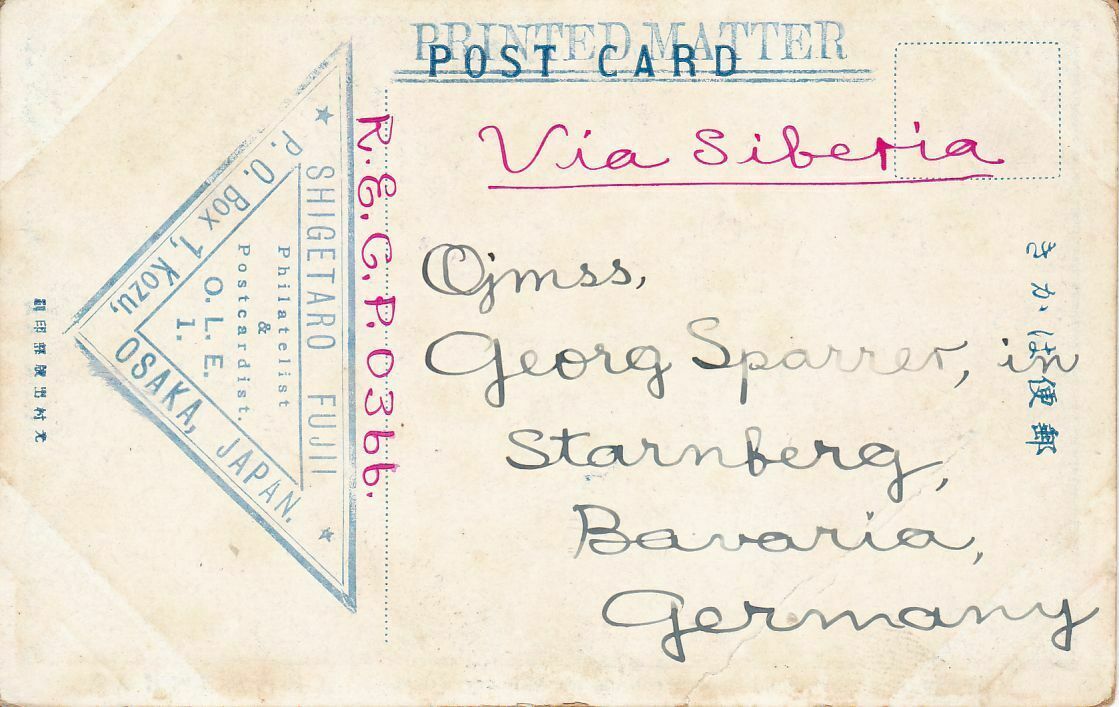 PRINTED MATTER
POST CARD
Via Siberia
Ojmss,
Georg Sparrer, in
Starnberg,
Bavaria,
Germany
R.E.C.P. 0366.
★ SHIGETARO FUJII ★
P. O. Box 1, Kozu,
OSAKA, JAPAN.
Philatelist
&
Postcardist.
O. L. E.
1.
きかは便郵